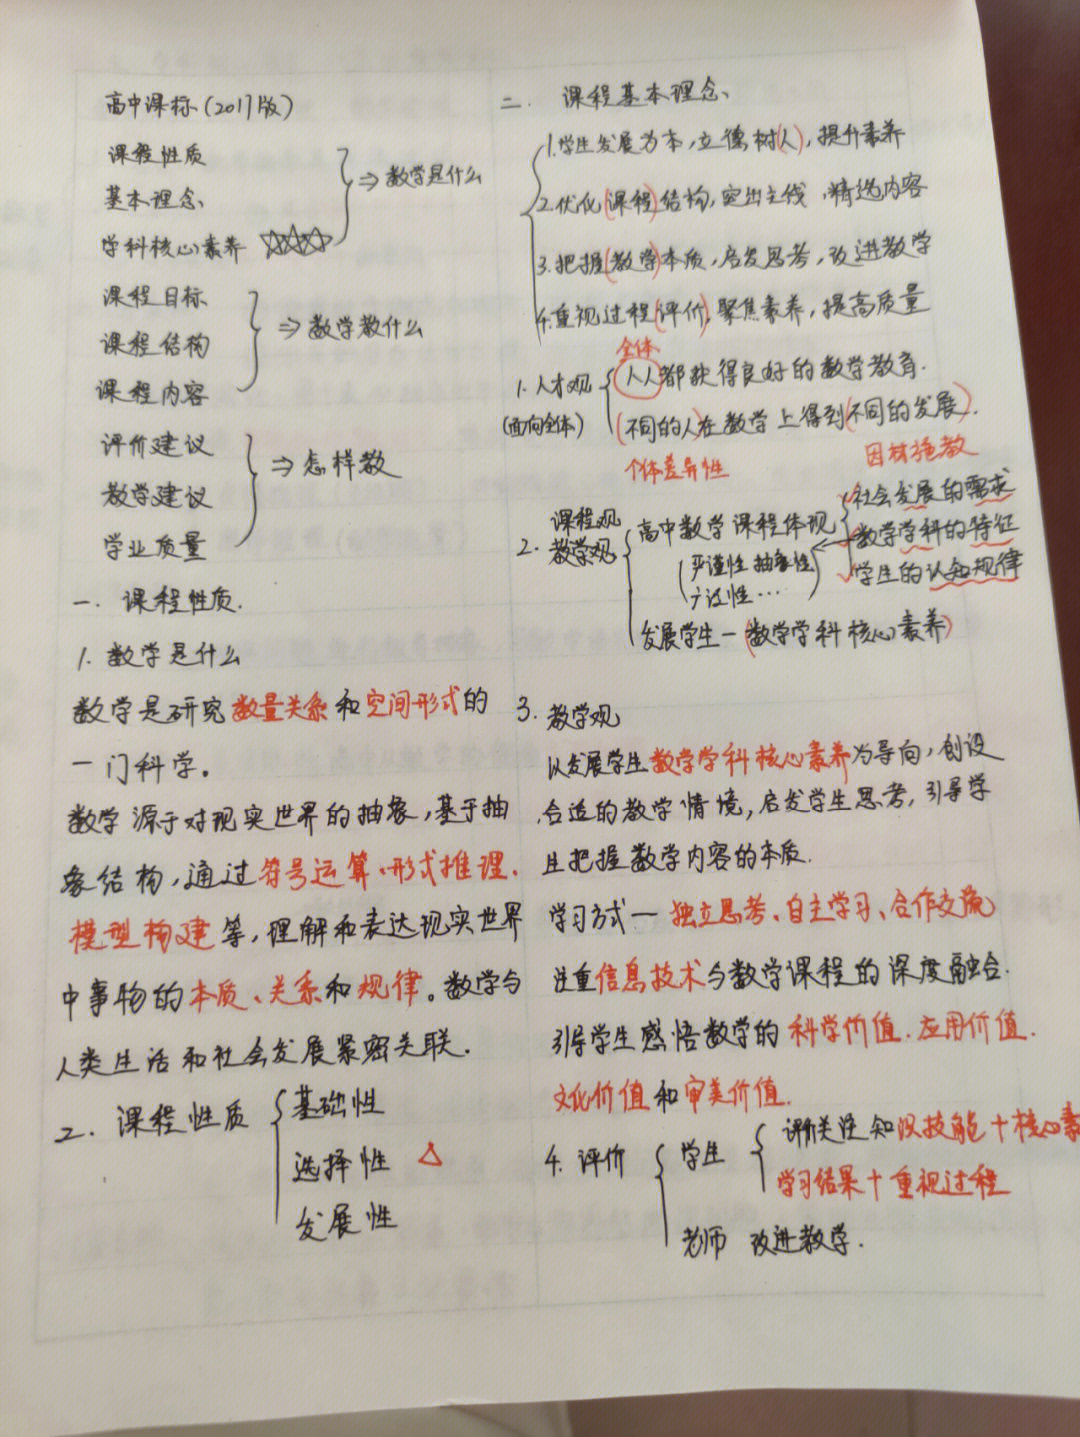 高中课标(2017版)
课程性质
基本理念
学科核心素养
⇒数学是什么
课程目标
课程结构
课程内容
⇒数学教什么
评价建议
教学建议
学业质量
⇒怎样教
一. 课程性质.
1. 数学是什么
数学是研究数量关系和空间形式的
一门科学。
数学源于对现实世界的抽象,基于抽
象结构,通过符号运算、形式推理、
模型构建等,理解和表达现实世界
中事物的本质、关系和规律。数学与
人类生活和社会发展紧密关联.
2. 课程性质
基础性
选择性 △
发展性
二. 课程基本理念、
1.学生发展为本,立德树(人),提升素养
2.优化(课程)结构,突出主线,精选内容
3.把握(教学)本质,启发思考,改进教学
4.重视过程(评价),聚焦素养,提高质量
全体
1. 人才观
(面向全体)
人人都获得良好的数学教育.
(不同的人)在数学上得到(不同的发展).
个体差异性
因材施教
2. 课程观
教学观
高中数学课程体现
社会发展的需求
数学学科的特征
学生的认知规律
(严谨性 抽象性
广泛性…)
发展学生—(数学学科核心素养)
3. 教学观
以发展学生数学学科核心素养为导向,创设
合适的教学情境,启发学生思考,引导学
且把握数学内容的本质.
学习方式— 独立思考、自主学习、合作交流
注重信息技术与数学课程的深度融合.
引导学生感悟数学的科学价值.应用价值.
文化价值和审美价值.
4. 评价
学生
评价关注知识技能+核心素
学习结果+重视过程
老师 改进教学.